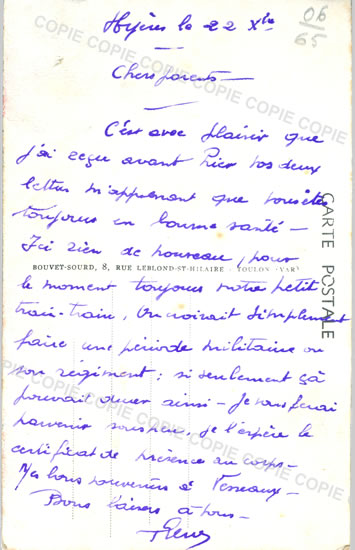 Hyères le 22 Xbre
06
65
Chers parents —
C'est avec plaisir que
j'ai reçu avant hier vos deux
lettres m'apprenant que vous êtes
toujours en bonne santé —
Ici rien de nouveau, pour
BOUVET-SOURD, 8, RUE LEBLOND-ST-HILAIRE - TOULON (VAR)
CARTE POSTALE
le moment toujours notre petit
train-train, on croirait simplement
faire une période militaire ou
son régiment ; si seulement ça
pouvait durer ainsi — Je vous ferai
parvenir sous peu, je l'espère le
certificat de présence au corps —
Mes bons souvenirs à
Bons baisers à tous —
COPIE COPIE COPIE COPIE COPIE
COPIE COPIE COPIE COPIE COPIE
COPIE COPIE COPIE COPIE COPIE